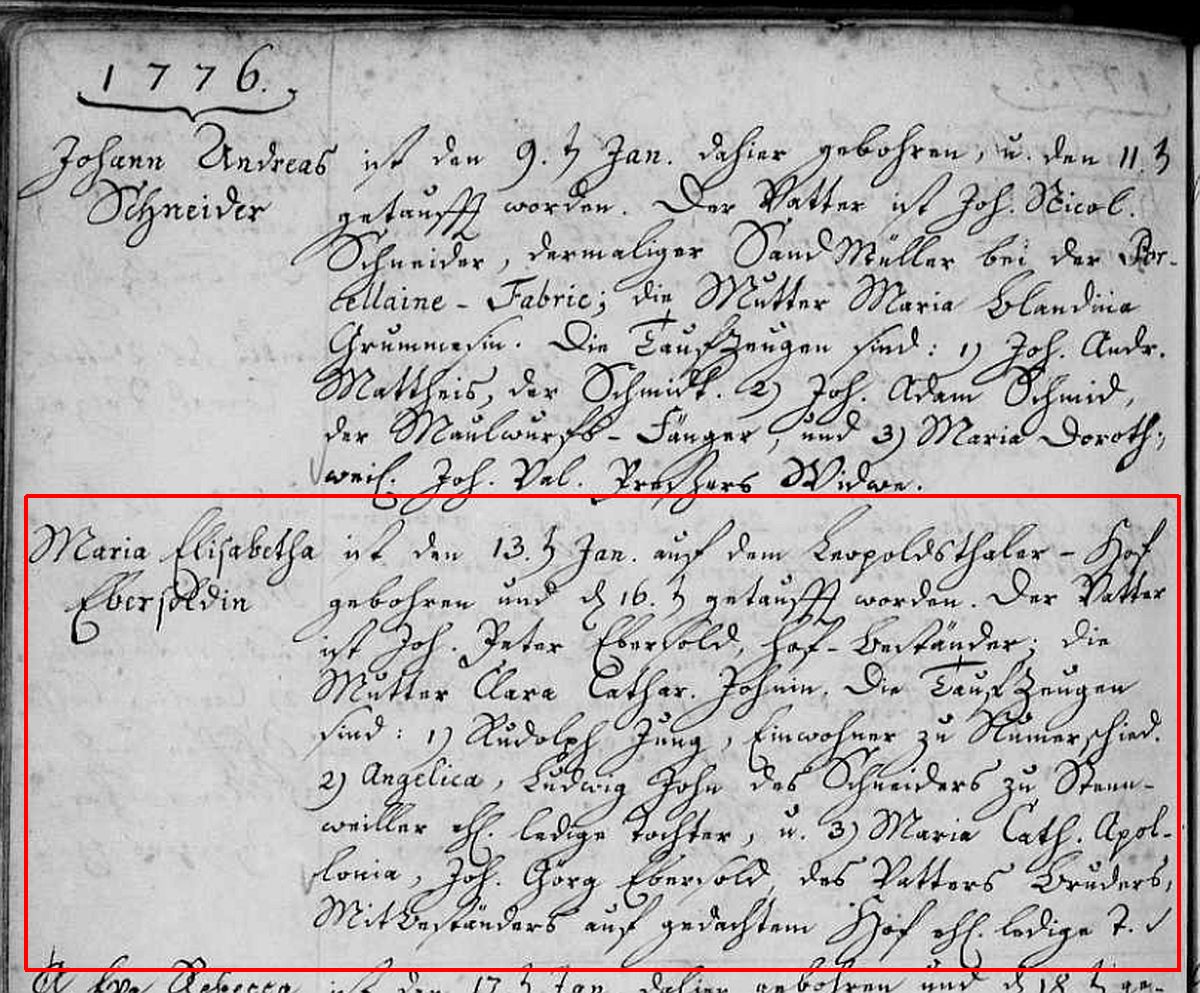 1776.
Johann Andreas ist den 9.t Jan. dahier gebohren, u. den 11.t
Schneider getaufft worden. Der Vatter ist Joh. Nicol.
Schneider, dermaliger SandMüller bei der Por-
cellaine-Fabric; die Mutter Maria Blandina
Grummesin. Die TaufZeugen sind: 1) Joh. Andr.
Mattheis, der Schmidt. 2) Joh. Adam Schmid,
der Maulwurfs-Fänger, und 3) Maria Doroth:,
weil. Joh. Val. Widwe.
Maria Elisabetha ist den 13.t Jan. auf dem Leopoldsthaler-Hof
Ebersoldin gebohren und d 16.t getaufft worden. Der Vatter
ist Joh. Peter Ebersold, Hof-Beständer; die
Mutter Clara Cathar. Johnin. Die TaufZeugen
sind: 1) Rudolph Jung, Einwohner zu Numerschied.
2) Angelica, Ludwig John des Schneiders zu Stenn-
weiller ehl. ledige Tochter, u. 3) Maria Cath. Apol-
lonia, Joh. Görg Ebersold, des Vatters Bruders,
MitBeständers auf gedachtem Hof ehl. ledige T.
Eva Rebecca ist den 17.t Jan. dahier gebohren und d 18.t ge-